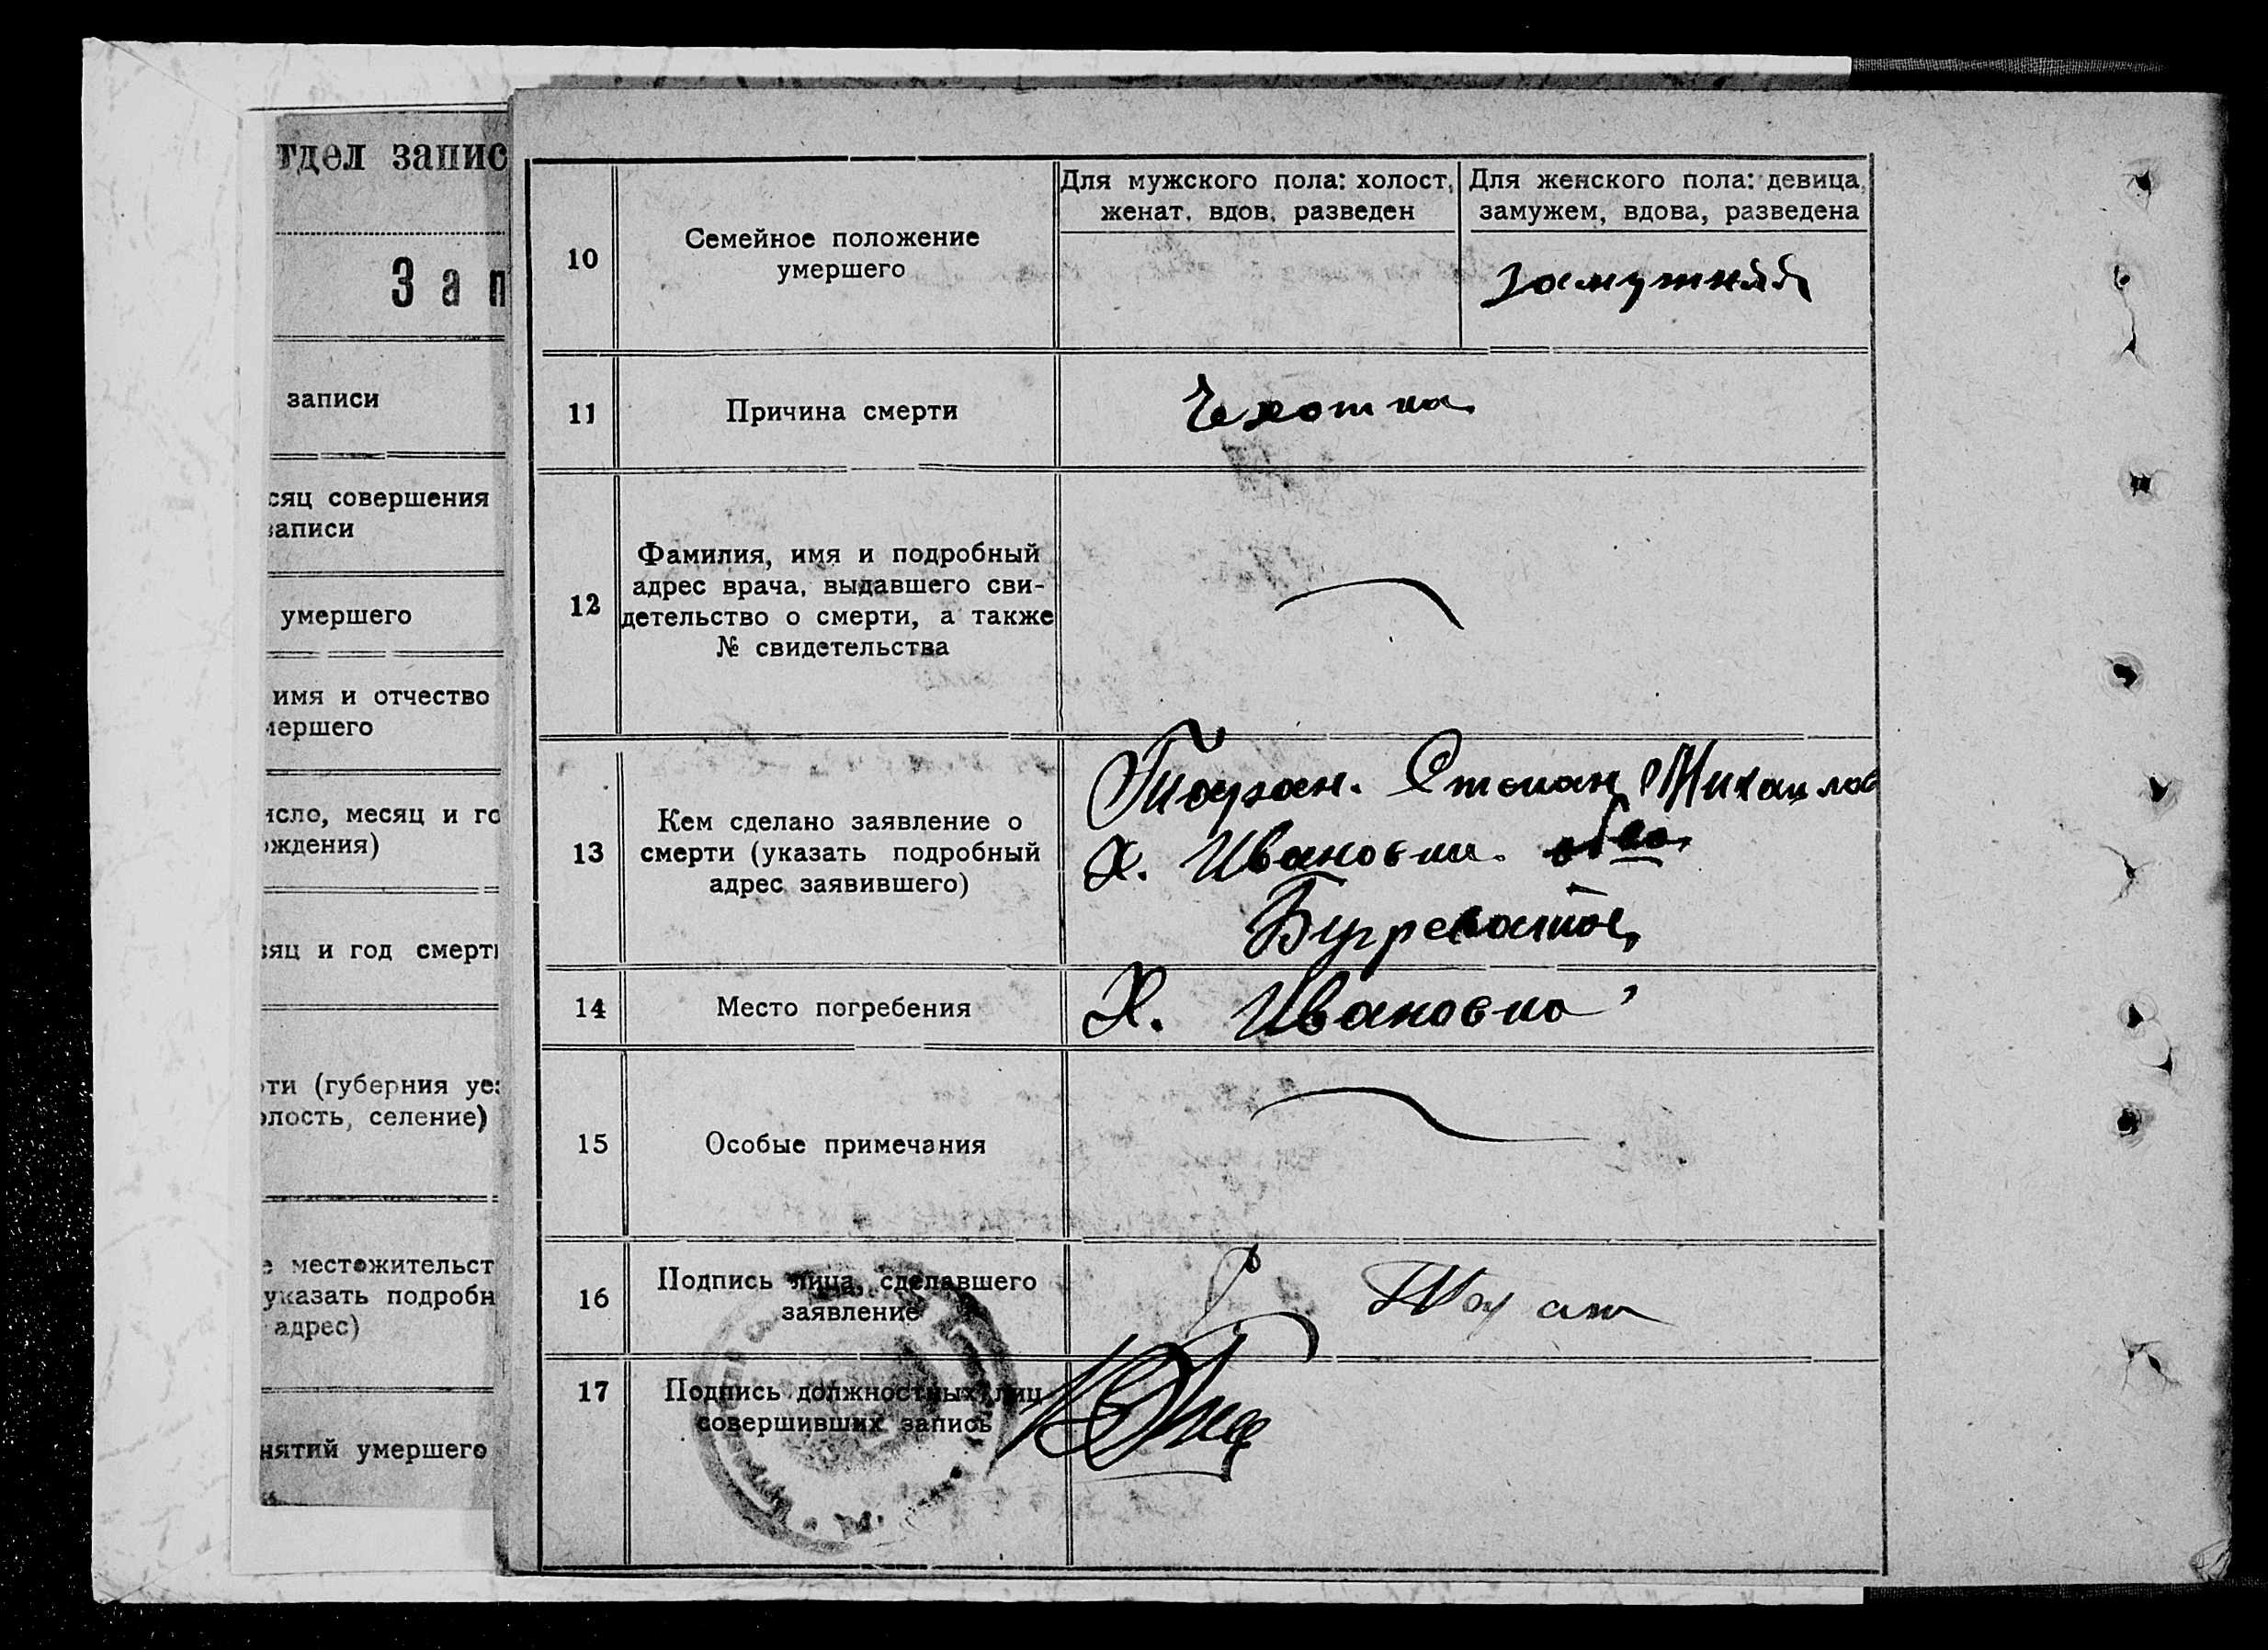 тдел запис
Зап
записи
сяц совершения
записи
умершего
имя и отчество
мершего
исло, месяц и го
ождения)
яц и год смерт
ти (губерния уе
олость, селение)
е местожительст
указать подробн
адрес)
нятий умершего
Для мужского пола: холост,
женат, вдов, разведен
Для женского пола: девица,
замужем, вдова, разведена
10
Семейное положение
умершего
замужняя
11
Причина смерти
Чахотка
12
Фамилия, имя и подробный
адрес врача, выдавшего сви-
детельство о смерти, а также
№ свидетельства
13
Кем сделано заявление о
смерти (указать подробный
адрес заявившего)
Степан Михайлов
х. Ивановка
14
Место погребения
Х. Ивановка
15
Особые примечания
16
Подпись лица, сделавшего
заявление
17
Подпись должностных лиц
совершивших запись